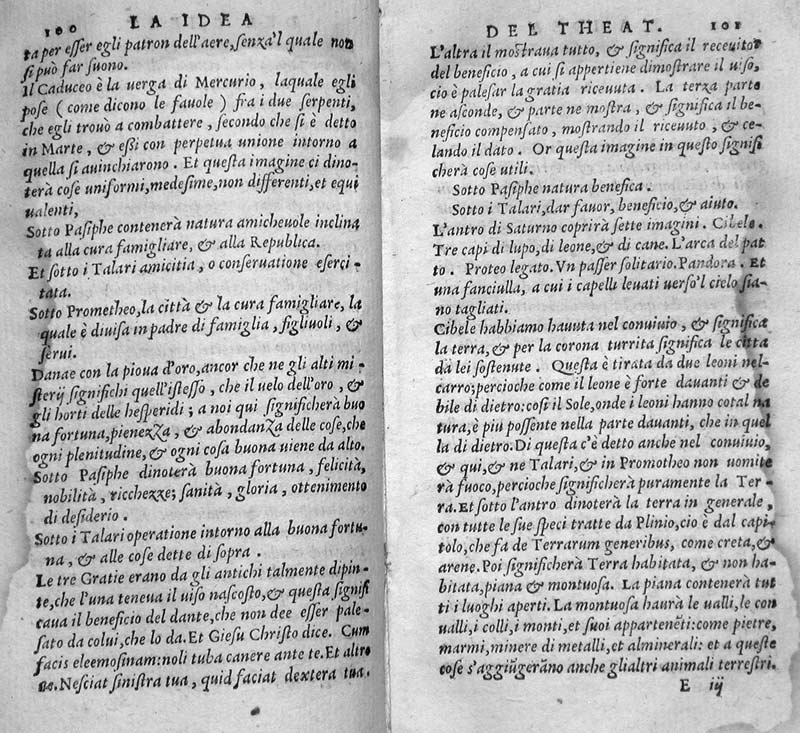 100 LA IDEA
ta per eſſer egli patron dell'aere, ſenza'l quale non
ſi può far ſuono.
Il Caduceo è la uerga di Mercurio, laquale egli
poſe ( come dicono le fauole ) fra i due ſerpenti,
che egli trouò a combattere, ſecondo che ſi è detto
in Marte, & eſſi con perpetua unione intorno a
quella ſi auinchiarono. Et queſta imagine ci dino-
terà coſe uniformi, medeſime, non differenti, et equi
ualenti,
Sotto Paſiphe contenerà natura amicheuole inclina
ta alla cura famigliare, & alla Republica.
Et ſotto i Talari amicitia, o conſeruatione eſerci-
tata.
Sotto Prometheo, la città & la cura famigliare, la
quale è diuiſa in padre di famiglia, figliuoli, &
ſerui.
Danae con la pioua d'oro, ancor che ne gli alti mi-
ſterij ſignifichi quell'iſteſſo, che il uelo dell'oro, &
gli horti delle heſperidi; a noi qui ſignificherà buo
na fortuna, pienezza, & abondanza delle coſe, che
ogni plenitudine, & ogni coſa buona uiene da alto.
Sotto Paſiphe dinoterà buona fortuna, felicità,
nobilità, ricchezze; ſanità, gloria, ottenimento
di deſiderio.
Sotto i Talari operatione intorno alla buona fortu-
na, & alle coſe dette di ſopra.
Le tre Gratie erano da gli antichi talmente dipin-
te, che l'una teneua il uiſo naſcoſto, & queſta ſignifi
caua il beneficio del dante, che non dee eſſer pale-
ſato da colui, che lo da. Et Gieſu Chriſto dice. Cum
facis eleemoſinam: noli tuba canere ante te. Et altro
ue. Neſciat ſiniſtra tua, quid faciat dextera tua.
DEL THEAT. 101
L'altra il moſtraua tutto, & ſignifica il receuitor
del beneficio, a cui ſi appertiene dimoſtrare il uiſo,
cio è paleſar la gratia riceuuta. La terza parte
ne aſconde, & parte ne moſtra, & ſignifica il be-
neficio compenſato, moſtrando il riceuuto, & ce-
lando il dato. Or queſta imagine in queſto ſignifi
cherà coſe utili.
Sotto Paſiphe natura benefica.
Sotto i Talari, dar fauor, beneficio, & aiuto.
L'antro di Saturno coprirà ſette imagini. Cibele.
Tre capi di lupo, di leone, & di cane. L'arca del pat
to. Proteo legato. Vn paſſer ſolitario. Pandora. Et
una fanciulla, a cui i capelli leuati uerſo'l cielo ſia-
no tagliati.
Cibele habbiamo hauuta nel conuiuio, & ſignifica
la terra, & per la corona turrita ſignifica le città
da lei ſoſtenute. Queſta è tirata da due leoni nel-
carro; percioche come il leone è forte dauanti & de
bile di dietro: coſi il Sole, onde i leoni hanno cotal na
tura, è più poſſente nella parte dauanti, che in quel
la di dietro. Di queſta c'è detto anche nel conuiuio,
& qui, & ne Talari, & in Promotheo non uomite
rà fuoco, percioche ſignificherà puramente la Ter-
ra. Et ſotto l'antro dinoterà la terra in generale,
con tutte le ſue ſpeci tratte da Plinio, cio è dal capi
tolo, che fa de Terrarum generibus, come creta, &
arene. Poi ſignificherà Terra habitata, & non ha-
bitata, piana & montuoſa. La piana contenerà tut
ti i luoghi aperti. La montuoſa haurà le ualli, le con
ualli, i colli, i monti, et ſuoi appartenēti: come pietre,
marmi, minere di metalli, et alminerali: et a queſte
coſe s'aggiūgerāno anche glialtri animali terreſtri.
E iij